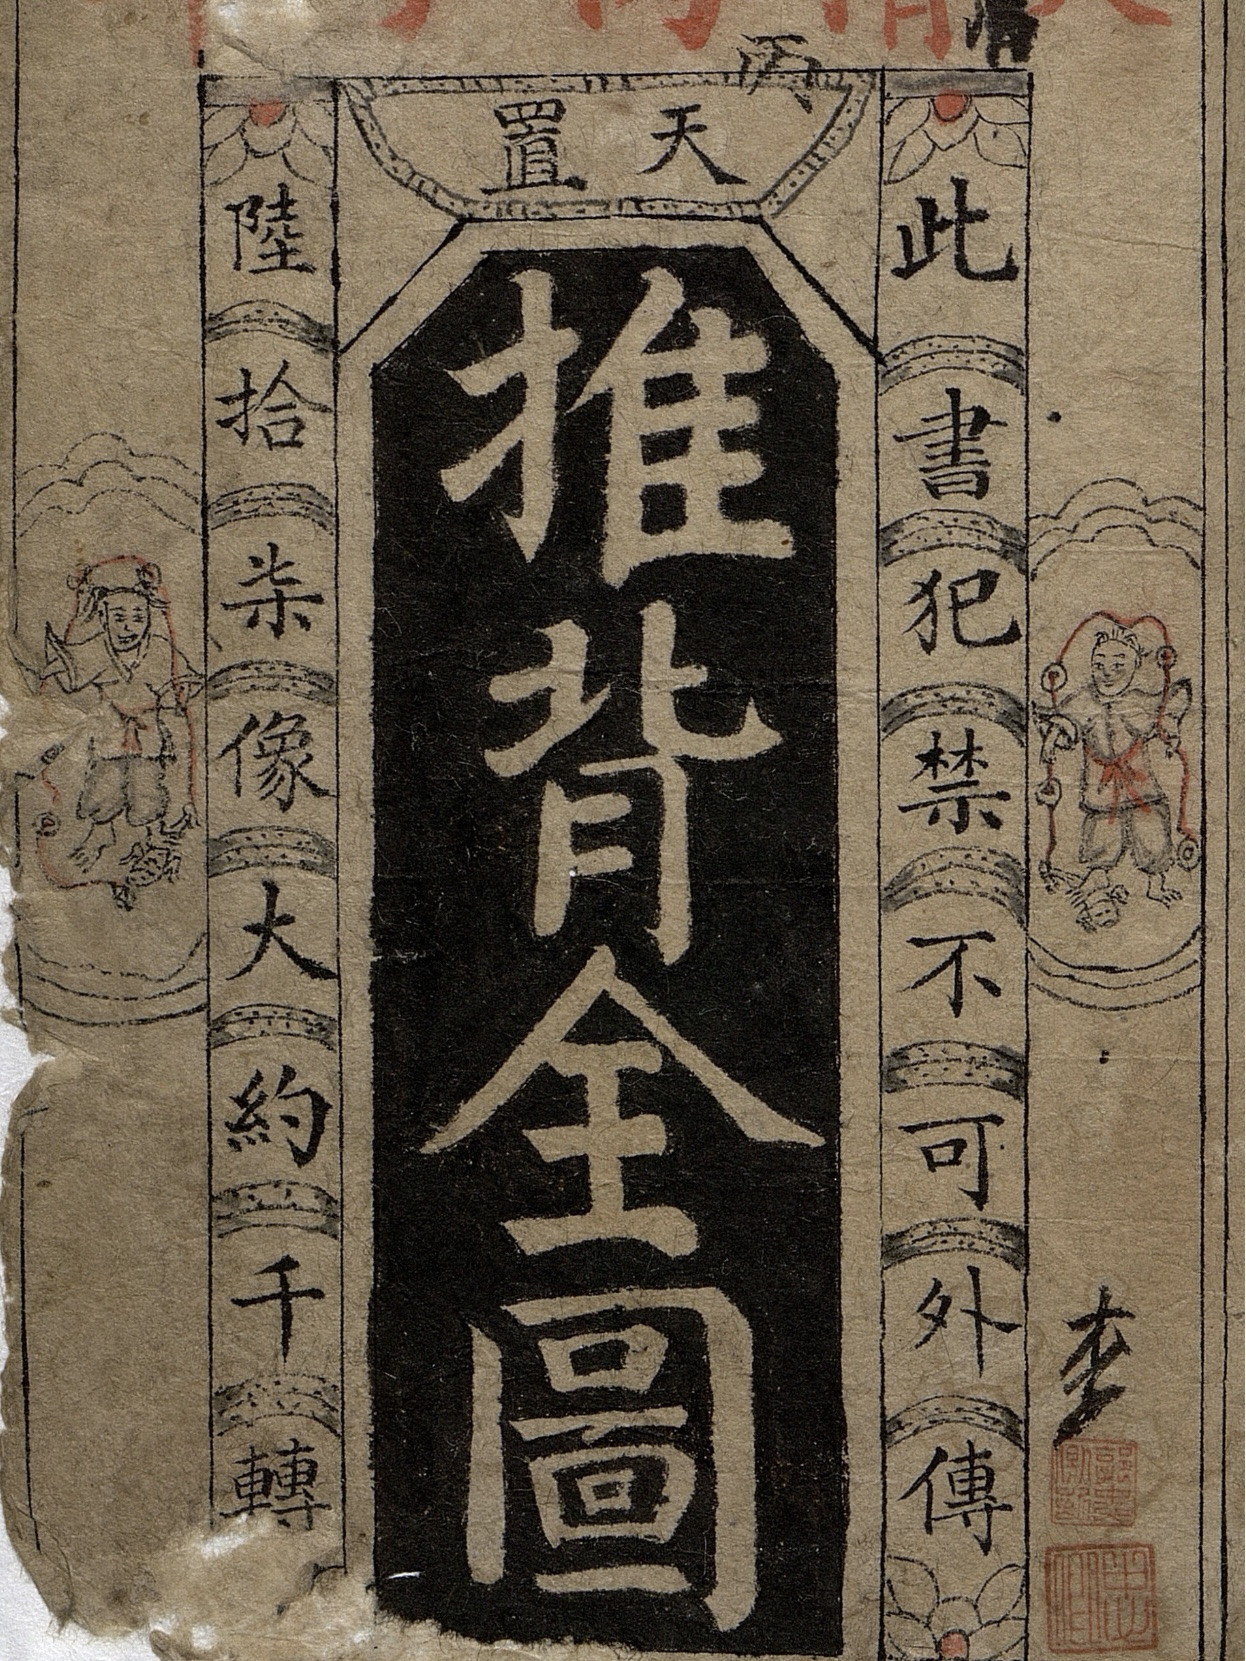 丙
天置
此書犯禁不可外傳
推背全圖
陸拾柒像大約千轉